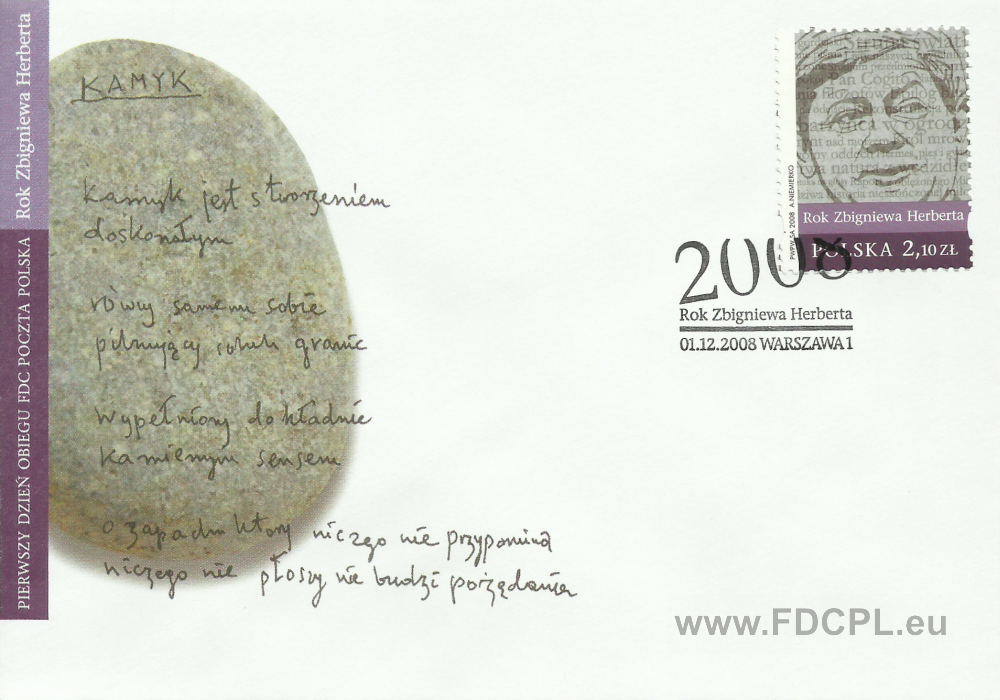 PIERWSZY DZIEŃ OBIEGU FDC POCZTA POLSKA Rok Zbigniewa Herberta
KAMYK
kamyk jest stworzeniem
doskonałym
równy samemu sobie
pilnujący swych granic
wypełniony dokładnie
kamiennym sensem
o zapachu który niczego nie przypomina
niczego nie płoszy nie budzi pożądania
Struna światła
Pan Cogito
Barbarzyńca w ogrodzie
Król mrówek
martwa natura z wędzidłem
PWPW SA 2008 A.NIEMIERKO
Rok Zbigniewa Herberta
POLSKA 2,10 ZŁ
2008
Rok Zbigniewa Herberta
01.12.2008 WARSZAWA 1
www.FDCPL.eu